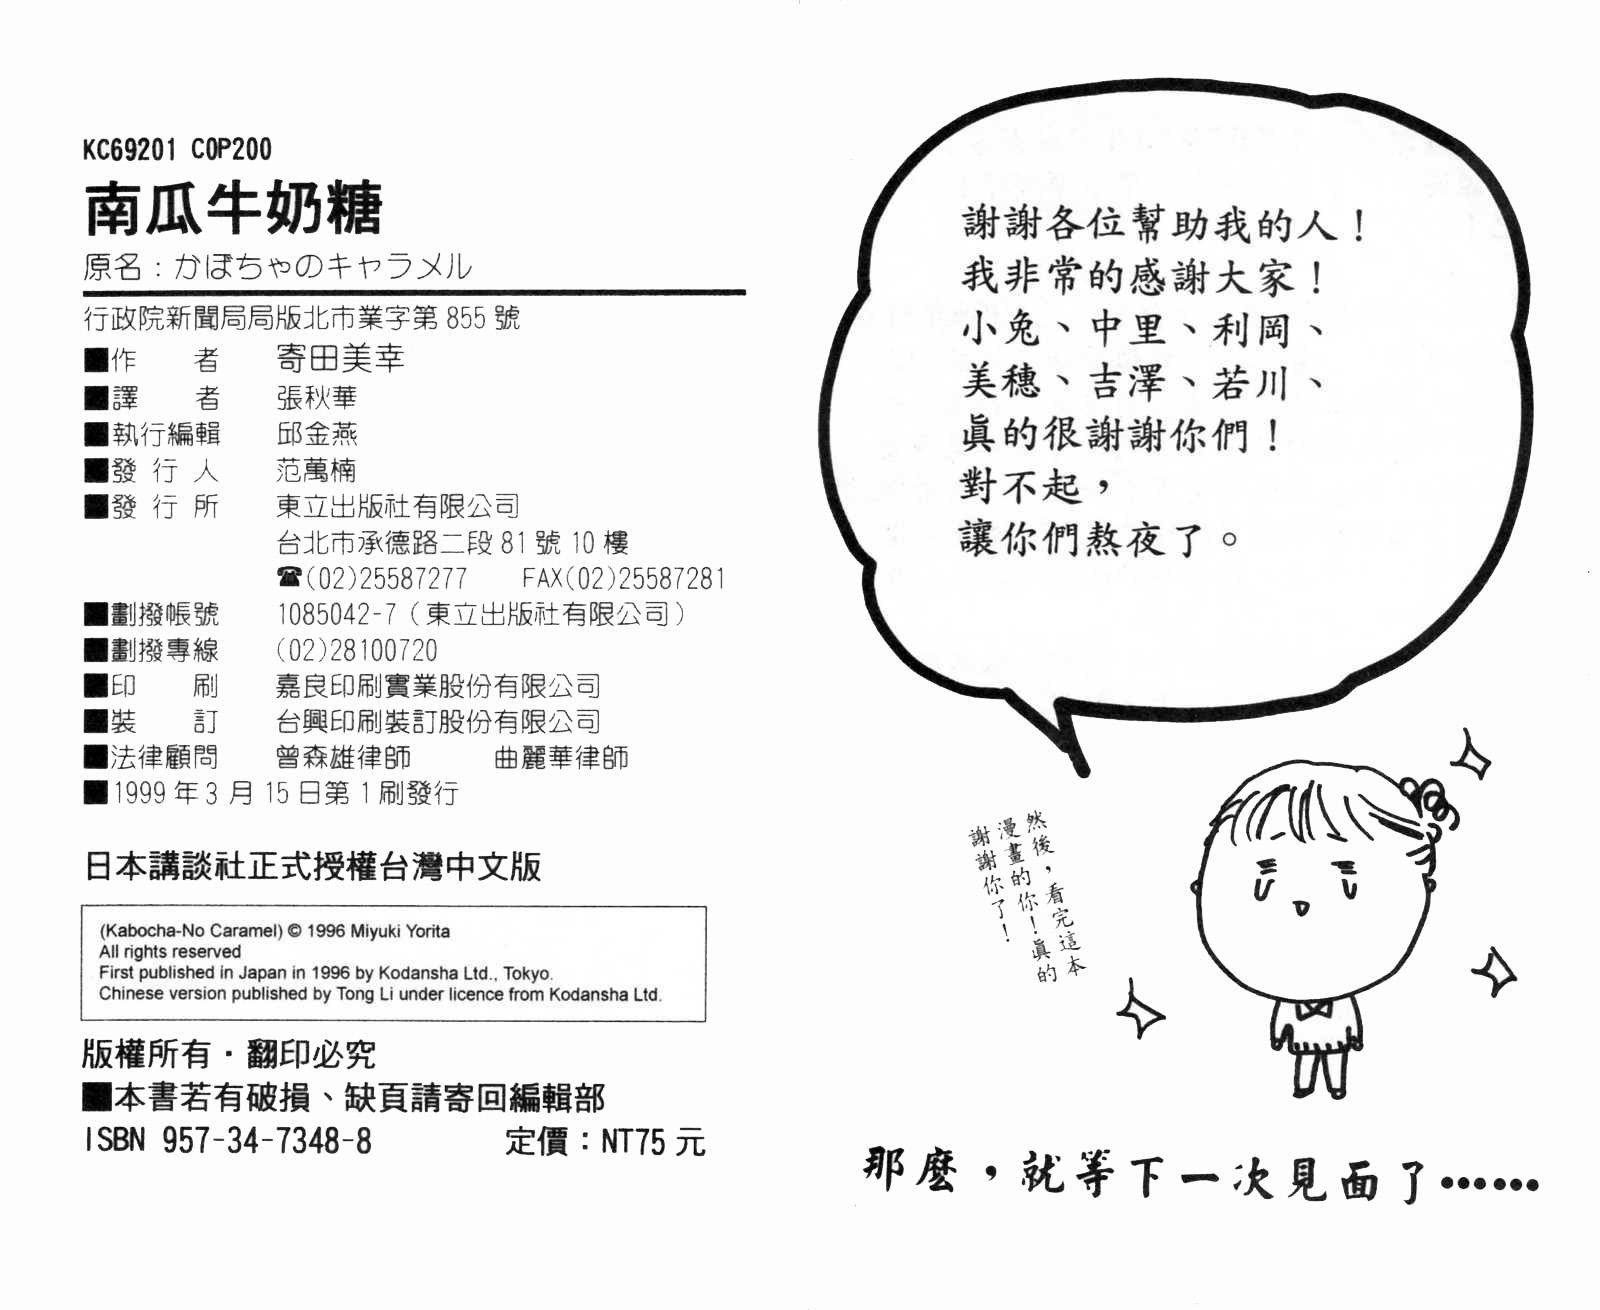 KC69201 COP200
南瓜牛奶糖
原名：かぼちゃのキャラメル
行政院新聞局局版北市業字第 855 號
■作　者　寄田美幸
■譯　者　張秋華
■執行編輯　邱金燕
■發行人　范萬楠
■發行所　東立出版社有限公司
台北市承德路二段 81 號 10 樓
☎(02)25587277　FAX(02)25587281
■劃撥帳號　1085042-7（東立出版社有限公司）
■劃撥專線　(02)28100720
■印　刷　嘉良印刷實業股份有限公司
■裝　訂　台興印刷裝訂股份有限公司
■法律顧問　曾森雄律師　曲麗華律師
■1999 年 3 月 15 日第 1 刷發行
日本講談社正式授權台灣中文版
(Kabocha-No Caramel) © 1996 Miyuki Yorita
All rights reserved
First published in Japan in 1996 by Kodansha Ltd., Tokyo.
Chinese version published by Tong Li under licence from Kodansha Ltd.
版權所有・翻印必究
■本書若有破損、缺頁請寄回編輯部
ISBN 957-34-7348-8　定價：NT75 元
謝謝各位幫助我的人！
我非常的感謝大家！
小兔、中里、利岡、
美穗、吉澤、若川、
眞的很謝謝你們！
對不起，
讓你們熬夜了。
然後，看完這本
漫畫的你！眞的
謝謝你了！
那麼，就等下一次見面了⋯⋯